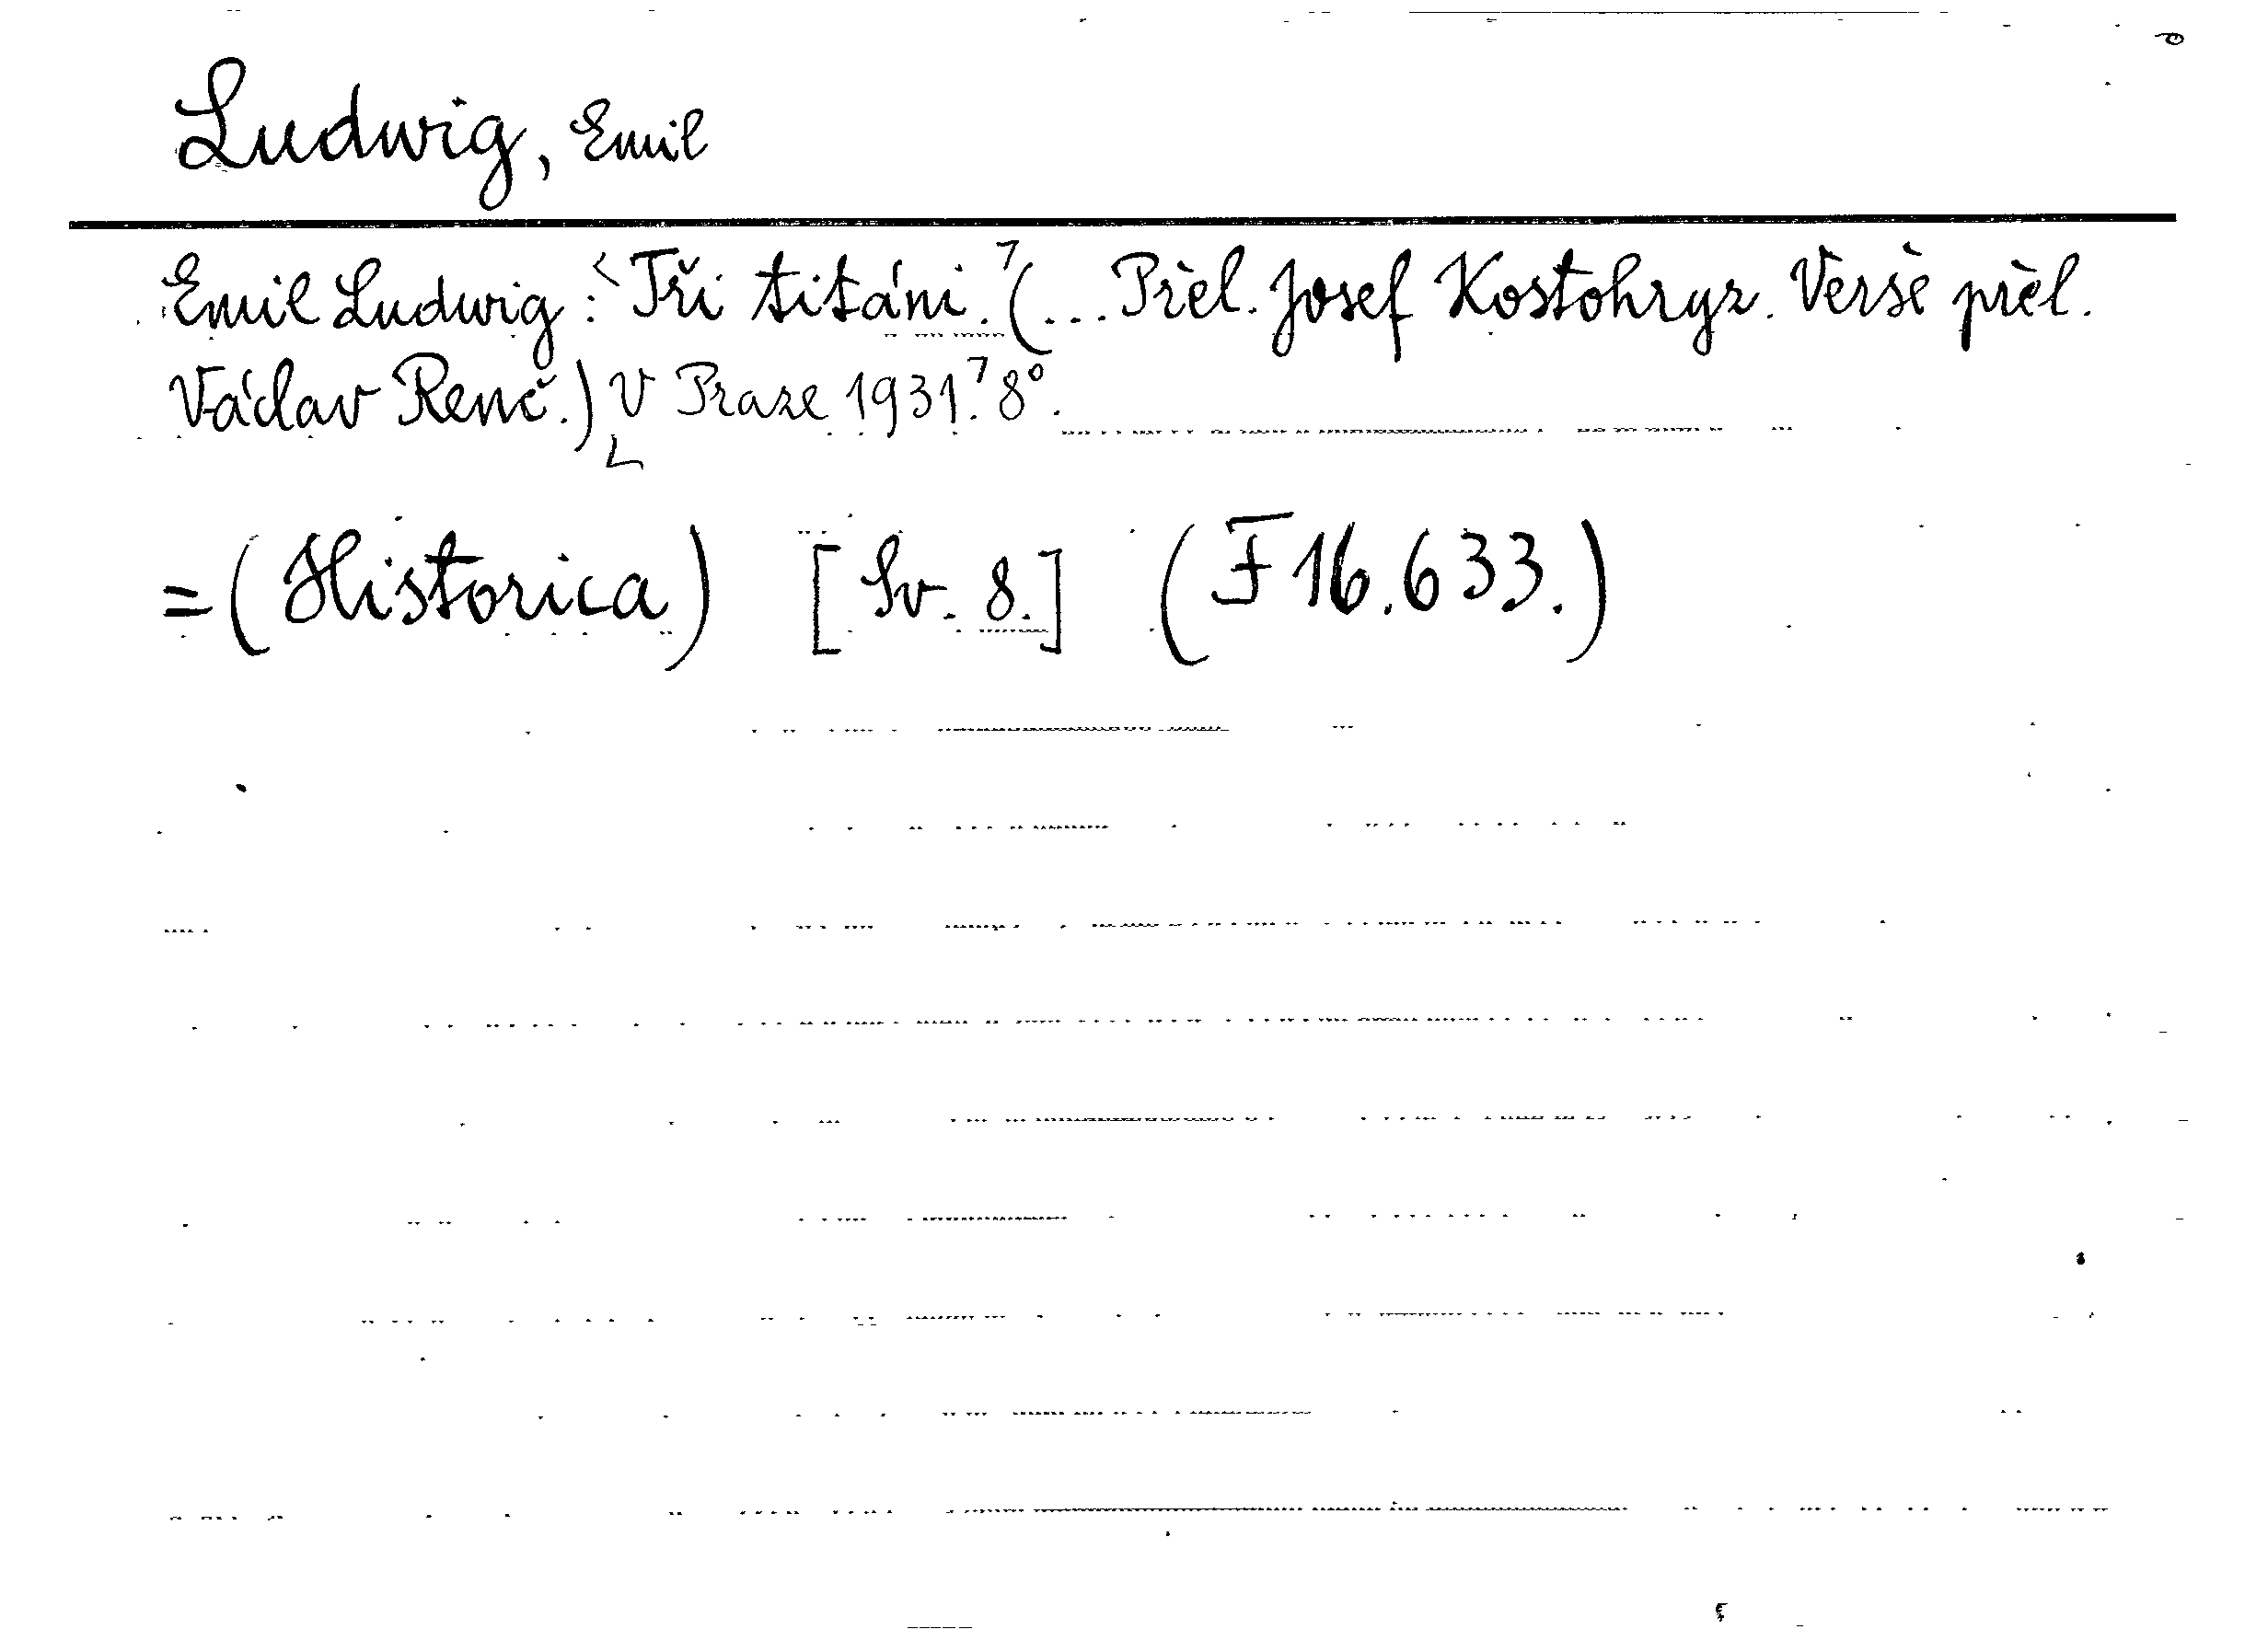 Ludwig, Emil
Emil Ludwig: Tři titáni. (... Přel. Josef Kostohryz. Verše přel.
Václav Renč.) V Praze 1931. 8°.
= (Historica) [Sv. 8.] (F 16.633.)